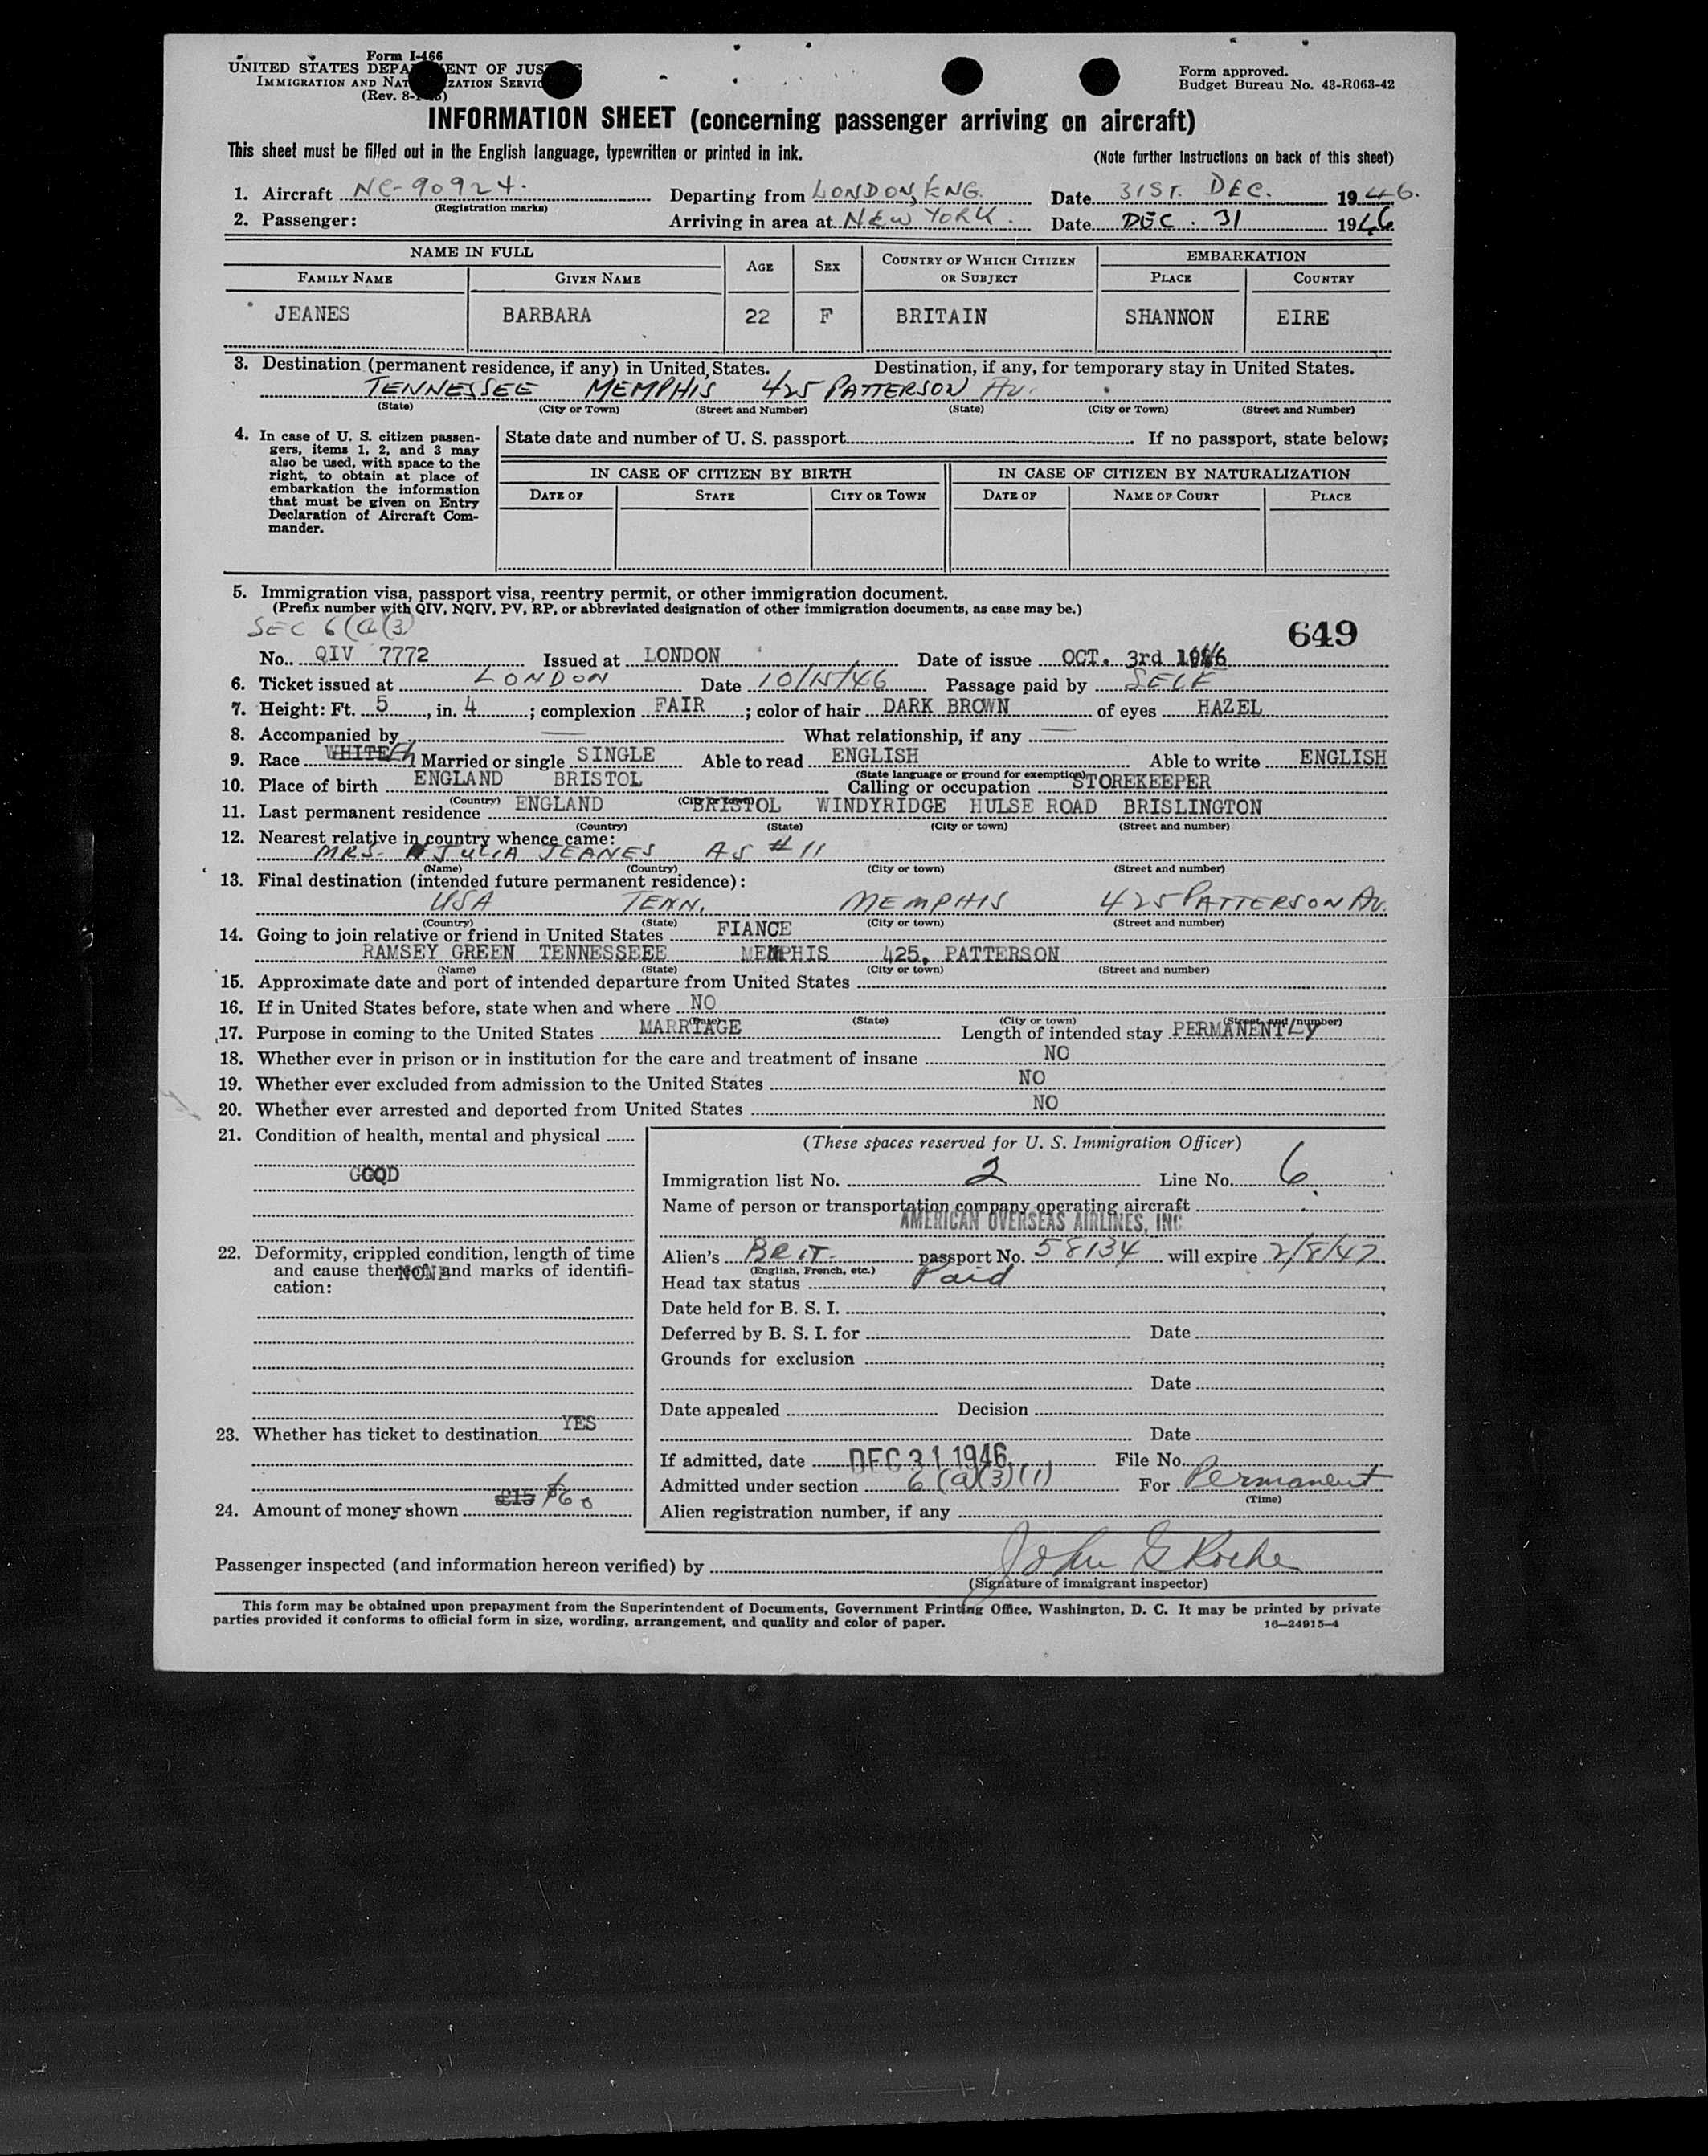 Form I-466
UNITED STATES DEPARTMENT OF JUSTICE
IMMIGRATION AND NATURALIZATION SERVICE
(Rev. 8-
Form approved.
Budget Bureau No. 43-R063-42
INFORMATION SHEET (concerning passenger arriving on aircraft)
This sheet must be filled out in the English language, typewritten or printed in ink. (Note further Instructions on back of this sheet)
1. Aircraft NC-90924. Departing from LONDON, ENG. Date 31ST. DEC. 1946.
(Registration marks)
2. Passenger: Arriving in area at NEW YORK. Date DEC. 31 1946
NAME IN FULL AGE SEX COUNTRY OF WHICH CITIZEN OR SUBJECT EMBARKATION
FAMILY NAME GIVEN NAME PLACE COUNTRY
JEANES BARBARA 22 F BRITAIN SHANNON EIRE
3. Destination (permanent residence, if any) in United States. Destination, if any, for temporary stay in United States.
TENNESSEE MEMPHIS 425 PATTERSON AV.
(State) (City or Town) (Street and Number) (State) (City or Town) (Street and Number)
4. In case of U. S. citizen passen-
gers, items 1, 2, and 3 may
also be used, with space to the
right, to obtain at place of
embarkation the information
that must be given on Entry
Declaration of Aircraft Com-
mander.
State date and number of U. S. passport If no passport, state below:
IN CASE OF CITIZEN BY BIRTH IN CASE OF CITIZEN BY NATURALIZATION
DATE OF STATE CITY OR TOWN DATE OF NAME OF COURT PLACE
5. Immigration visa, passport visa, reentry permit, or other immigration document.
(Prefix number with QIV, NQIV, PV, RP, or abbreviated designation of other immigration documents, as case may be.)
SEC 6(a(3)
649
No. QIV 7772 Issued at LONDON Date of issue OCT. 3rd 1946
6. Ticket issued at LONDON Date 10/15/46 Passage paid by SELF
7. Height: Ft. 5, in. 4; complexion FAIR; color of hair DARK BROWN of eyes HAZEL
8. Accompanied by — What relationship, if any —
9. Race WHITE Married or single SINGLE Able to read ENGLISH Able to write ENGLISH
(State language or ground for exemption)
10. Place of birth ENGLAND BRISTOL Calling or occupation STOREKEEPER
(Country) (City or town)
11. Last permanent residence ENGLAND BRISTOL WINDYRIDGE HULSE ROAD BRISLINGTON
(Country) (State) (City or town) (Street and number)
12. Nearest relative in country whence came:
MRS. JULIA JEANES AS # 11
(Name) (Country) (City or town) (Street and number)
13. Final destination (intended future permanent residence):
USA TENN. MEMPHIS 425 PATTERSON AV.
(Country) (State) (City or town) (Street and number)
14. Going to join relative or friend in United States FIANCE
RAMSEY GREEN TENNESSEEE MEMPHIS 425, PATTERSON
(Name) (State) (City or town) (Street and number)
15. Approximate date and port of intended departure from United States
16. If in United States before, state when and where NO
(Date) (State) (City or town) (Street and number)
17. Purpose in coming to the United States MARRIAGE Length of intended stay PERMANENTLY
18. Whether ever in prison or in institution for the care and treatment of insane NO
19. Whether ever excluded from admission to the United States NO
20. Whether ever arrested and deported from United States NO
21. Condition of health, mental and physical
GOOD
22. Deformity, crippled condition, length of time
and cause thereof, and marks of identifi-
cation:
NONE
23. Whether has ticket to destination YES
24. Amount of money shown £15 $60
(These spaces reserved for U. S. Immigration Officer)
Immigration list No. 2 Line No. 6
Name of person or transportation company operating aircraft
AMERICAN OVERSEAS AIRLINES, INC
Alien's BRIT. passport No. 58134 will expire 2/8/47
(English, French, etc.)
Head tax status Paid
Date held for B. S. I.
Deferred by B. S. I. for Date
Grounds for exclusion
Date
Date appealed Decision
Date
If admitted, date DEC 31 1946 File No.
Admitted under section 6(a)(3)(1) For Permanent
(Time)
Alien registration number, if any
Passenger inspected (and information hereon verified) by John G Roche
(Signature of immigrant inspector)
This form may be obtained upon prepayment from the Superintendent of Documents, Government Printing Office, Washington, D. C. It may be printed by private
parties provided it conforms to official form in size, wording, arrangement, and quality and color of paper. 16—24915-4